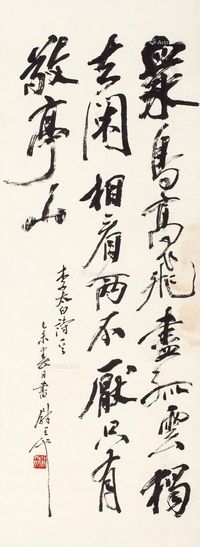 衆鳥高飛盡孤雲獨
去閑相看兩不厭只有
敬亭山
李太白詩意
乙未春日書